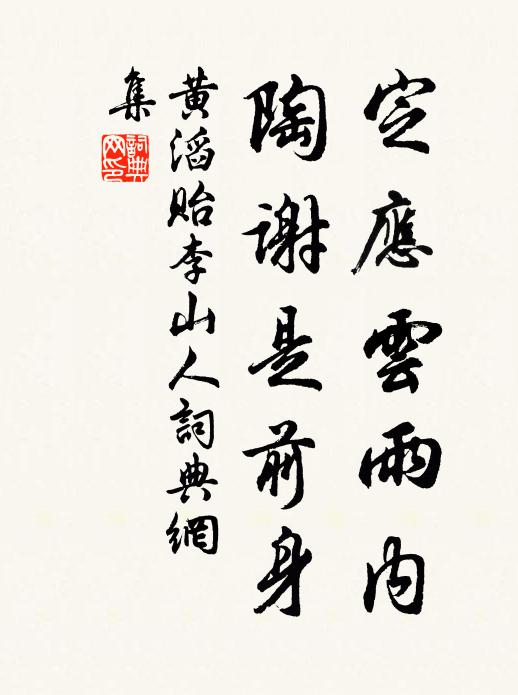 定應雲雨內
陶謝是前身
黃滔貽李山人詞典網
集
詞典網印